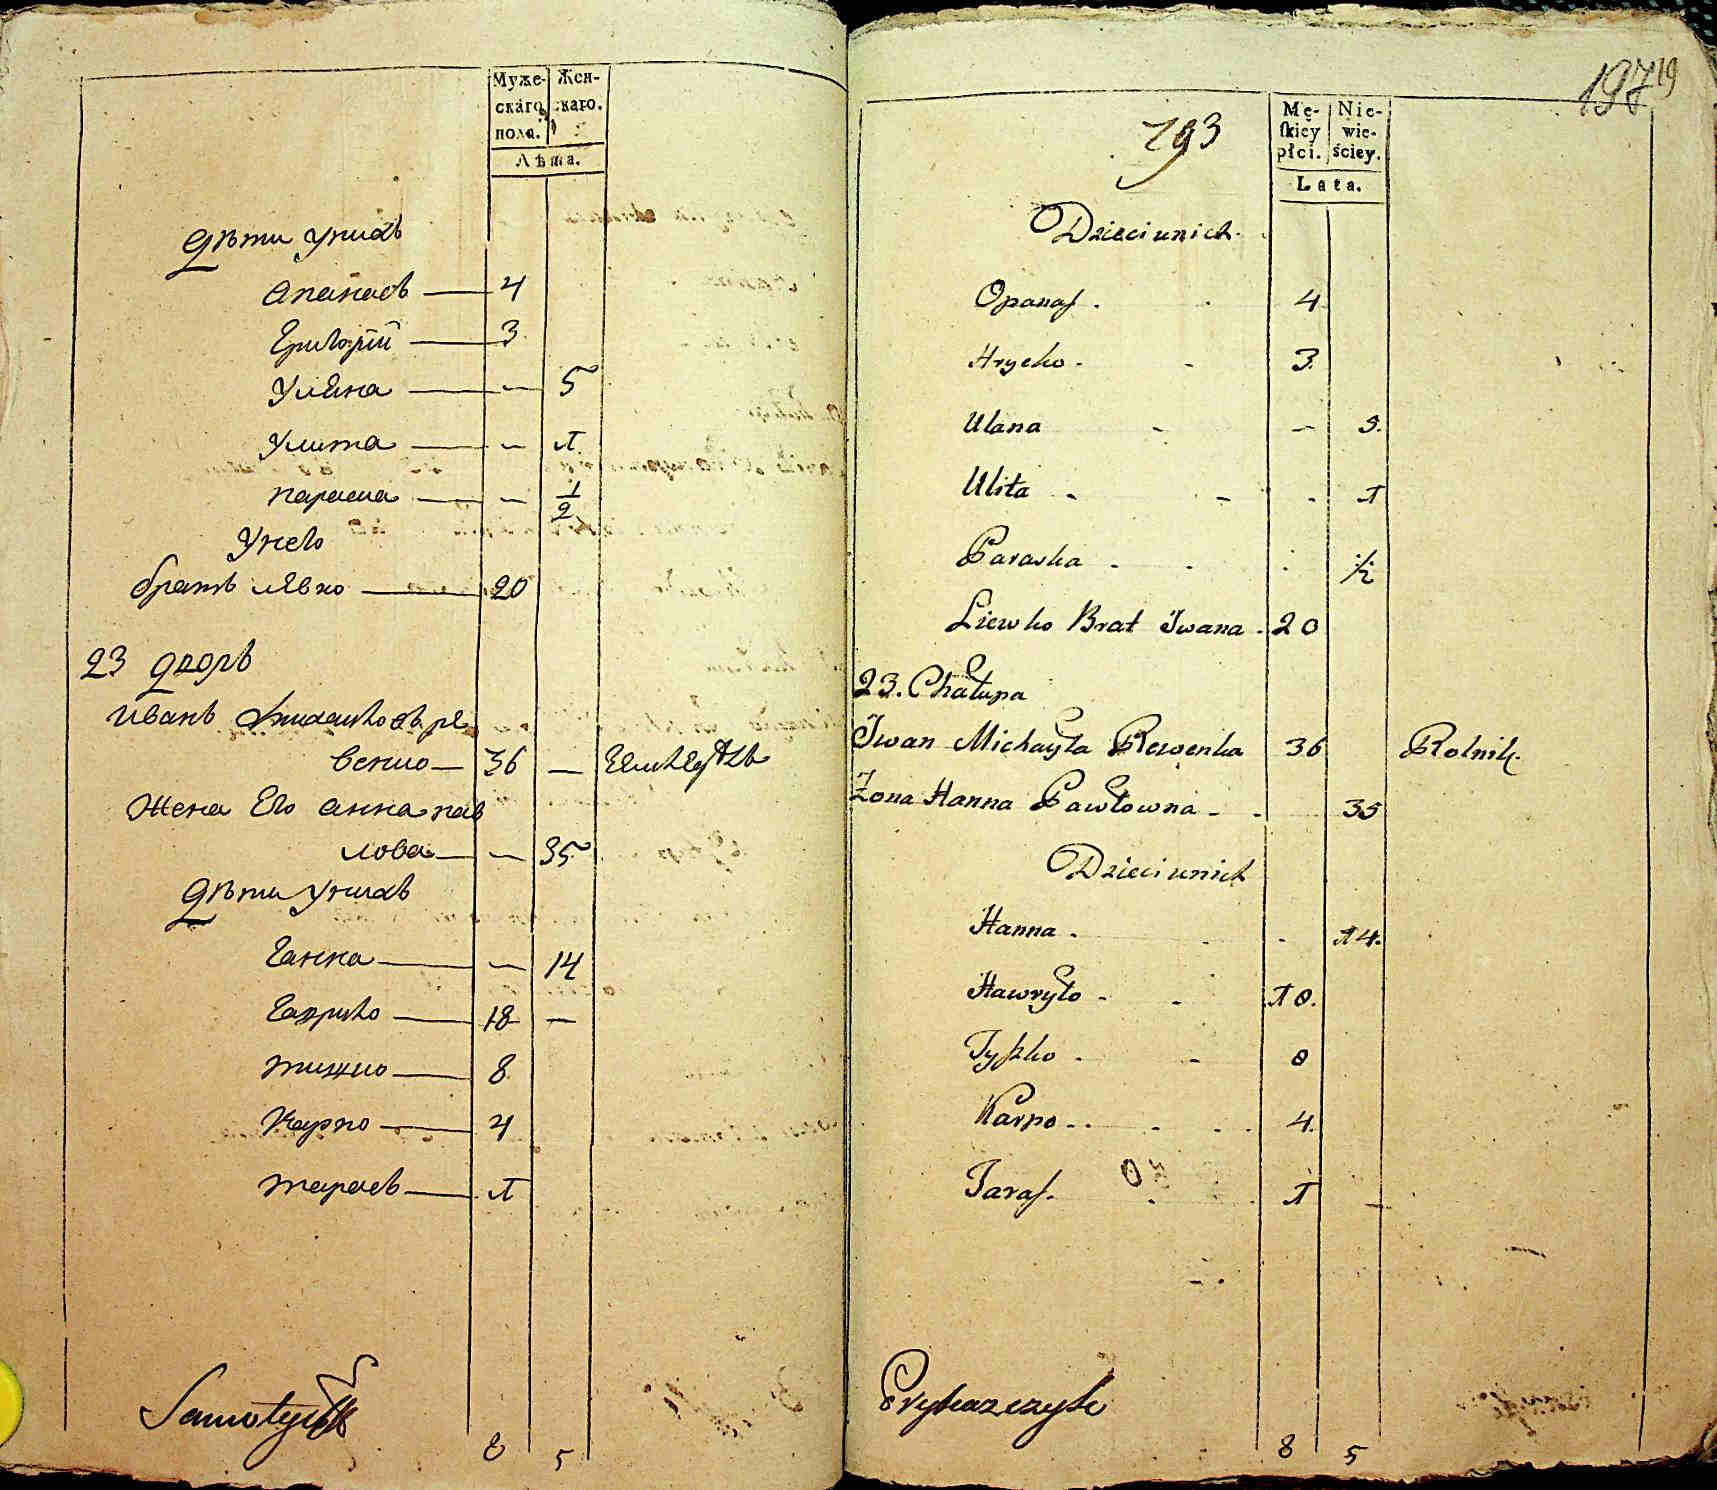 Муже-
скаго
пола.
Жен-
скаго.
Лѣта.
Дѣти унихъ
Апанасъ — 4
Григорій — 3
Уляна — — 5
Улита — — 1
Параска — — 1/2
Унего
братъ Лявко — 20
23 дворъ
Иванъ Михайловъ ре
венко — 36 —
Жена Его Анна пав
лова — — 35
Дѣти унихъ
Ганна — — 14
Гаврило — 18 —
Тишко — 8
Карпо — 4
Тарасъ — 1
Samotyia
8 5
197
19
793
Mę-
skiey
płci.
Nie-
wie-
ściey.
Lata.
Dzieci unich
Opanas 4
Hrycko 3
Ulana - 5
Ulita - 1
Paraska 1/2
Liewko Brat Iwana 20
23. Chałupa
Iwan Michayła Rewenka 36 Rolnik
Żona Hanna Pawłowna 35
Dzieci unich
Hanna 14
Hawryło 18
Tyszko 8
Karpo 4
Taras 1
Prykazczyk
8 5